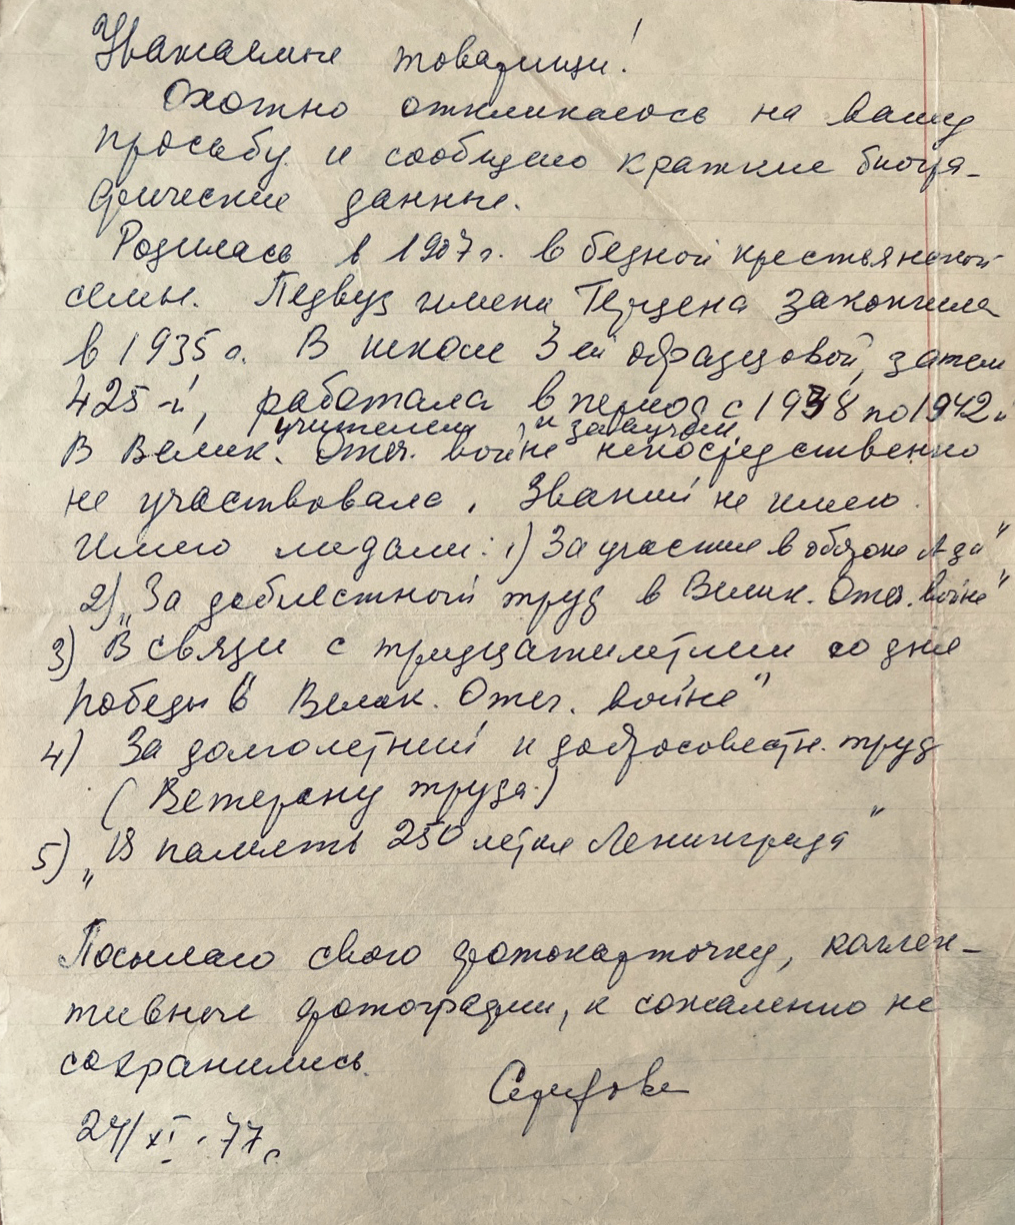 Уважаемые товарищи!
Охотно откликаюсь на вашу
просьбу и сообщаю краткие биогра-
фические данные.
Родилась в 1907 г. в бедной крестьянской
семье. Педвуз имени Герцена закончила
в 1935 г. В школе 3ей образцовой, затем
425-й, работала в период с 1938 по 1942 г.
учителем и завучем.
В Велик. Отеч. войне непосредственно
не участвовала. Званий не имею.
Имею медали: 1) За участие в обороне Л-да"
2) „За доблестный труд в Велик. Отеч. войне"
3) В связи с тридцатилетием со дня
победы в Велик. Отеч. войне"
4) За долголетний и добросовестн. труд
(Ветерану труда.)
5) „В память 250 летия Ленинграда"
Посылаю свою фотокарточку, коллек-
тивные фотографии, к сожалению не
сохранились.
24/XI.77 г.